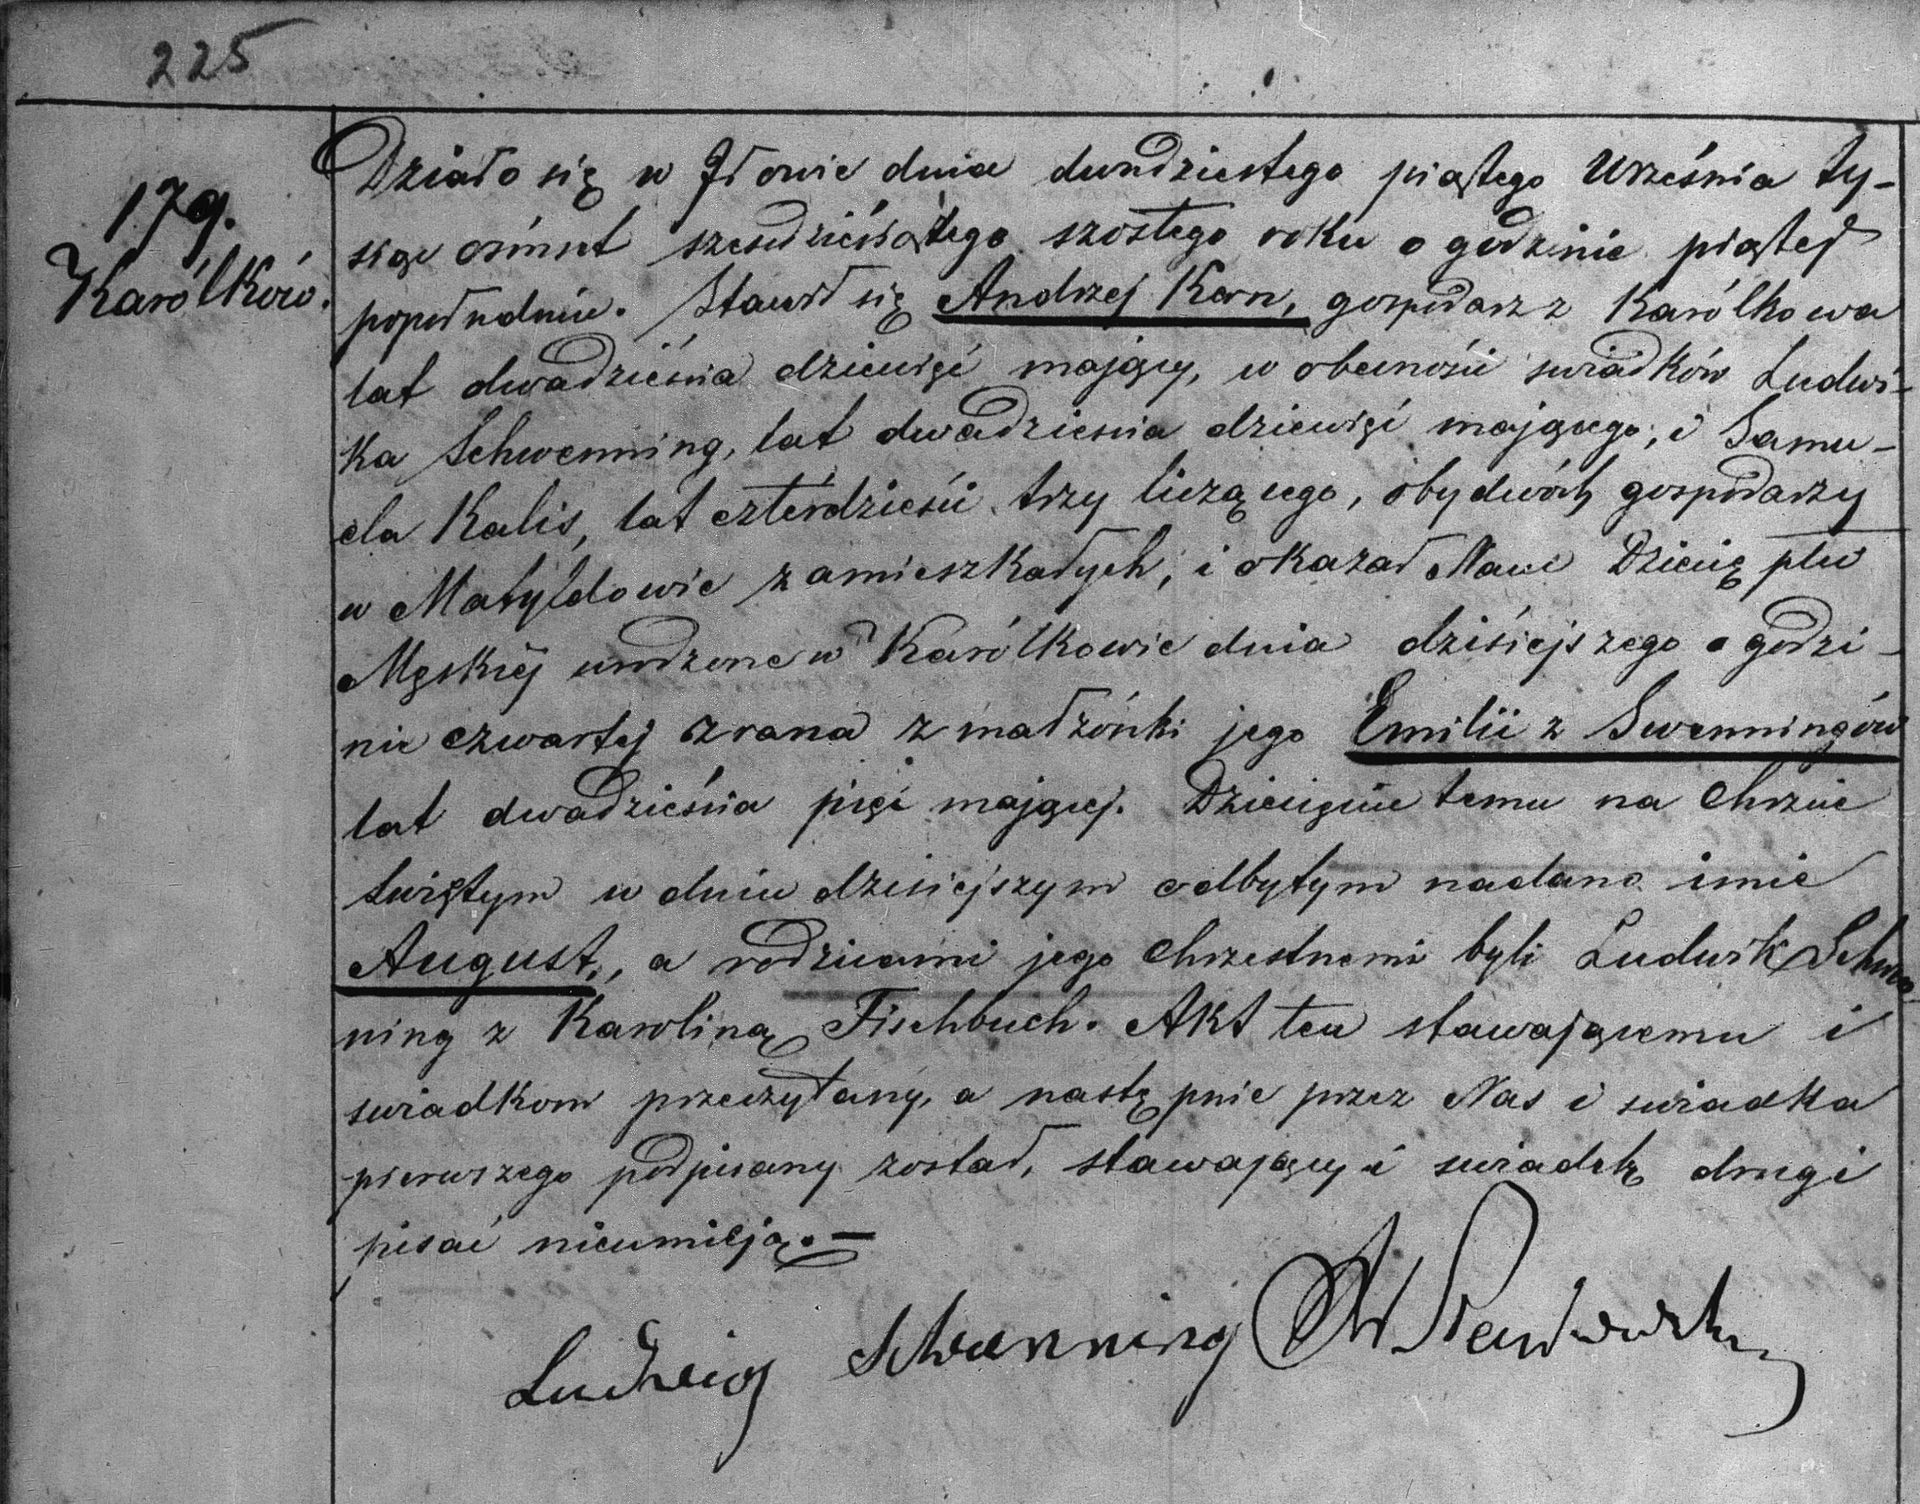 225
179.
Karólków.
Działo się w Iłowie dnia dwudziestego piątego Września ty-
siąc ośmset sześdziesiątego szóstego roku o godzinie piątej
popołudniu. Stawił się Andrzej Kern, gospodarz z Karólkowa
lat dwadzieścia dziewięć mający, w obecności swiadków Ludwi-
ka Schwenning, lat dwadzieścia dziewięć mającego, i Samu-
ela Kalis, lat czterdzieści trzy liczącego, obydwóch gospodarzy
w Matyldowie zamieszkałych, i okazał Nam Dziecię płci
Męskiéj urodzone w Karólkowie dnia dzisiejszego o godzi-
nie czwartej zrana z małżonki jego Emilii z Swenningów
lat dwadzieścia pięć mającej. Dziecięciu temu na Chrzcie
Swiętym w dniu dzisiejszym odbytym nadano imie
August, a rodzicami jego chrzestnemi byli Ludwik Schwe-
ning z Karoliną Fischbuch. Akt ten stawającemu i
swiadkom przeczytany, a następnie przez Nas i swiadka
pierwszego podpisany został, stawający i swiadek drugi
pisać nieumieją.—
Ludwig Schwenning